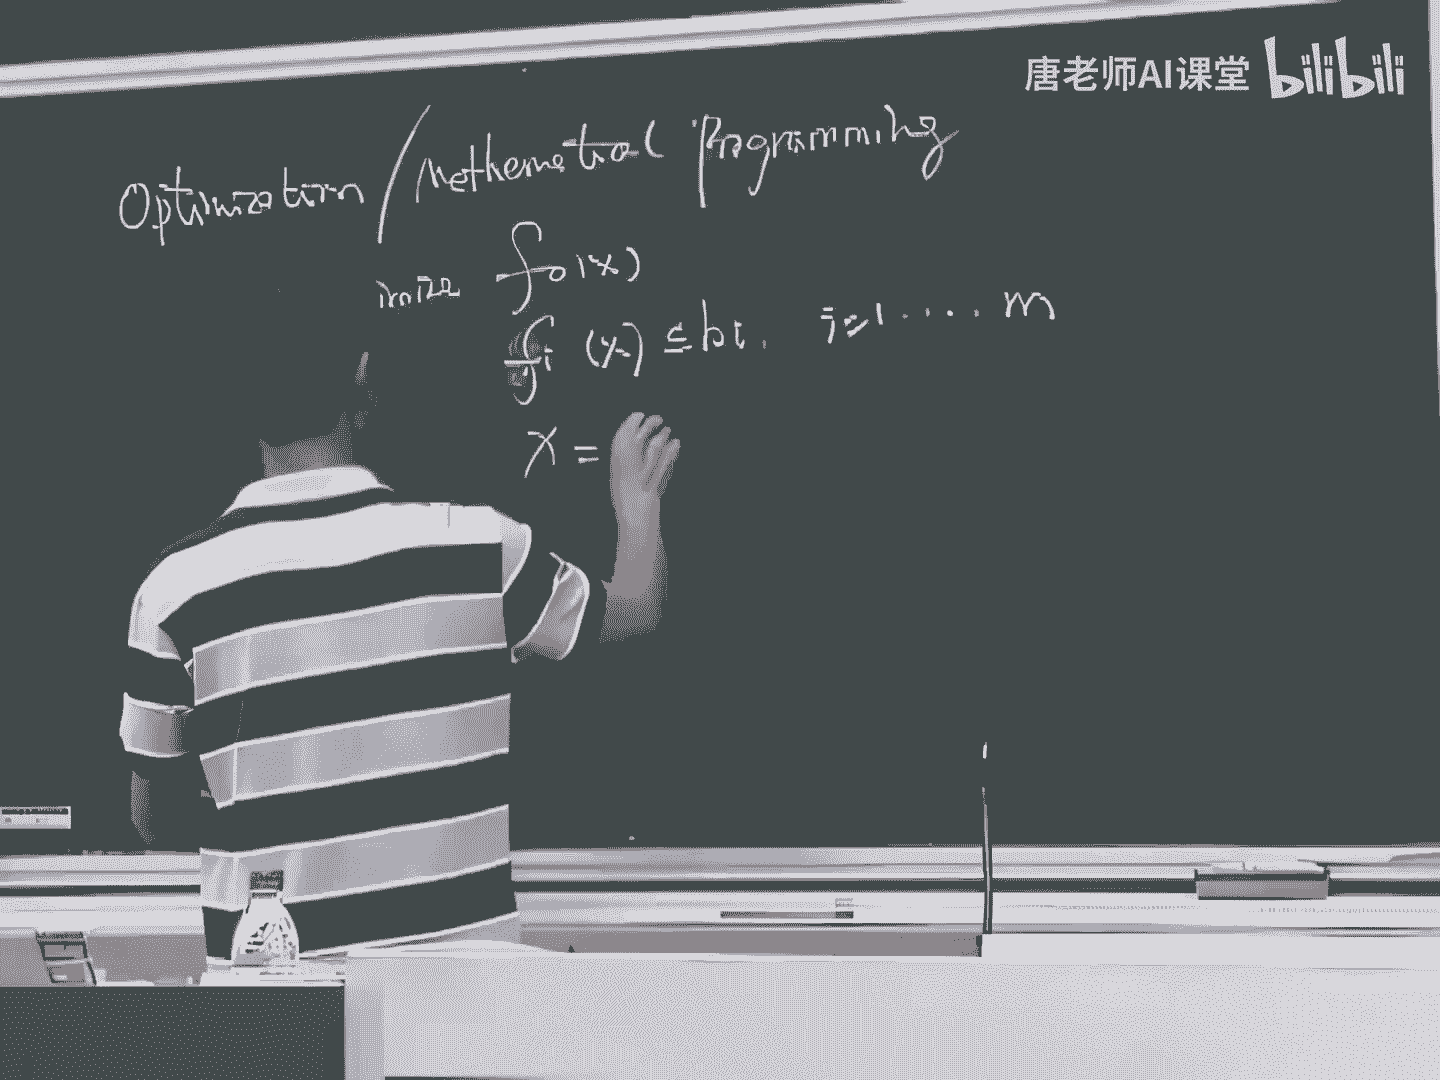 唐老师AI课堂 bilibili
Optimization / Mathematical Programming
imize f₀(x)
fᵢ(x) ≤ bᵢ. i=1.....m
x =